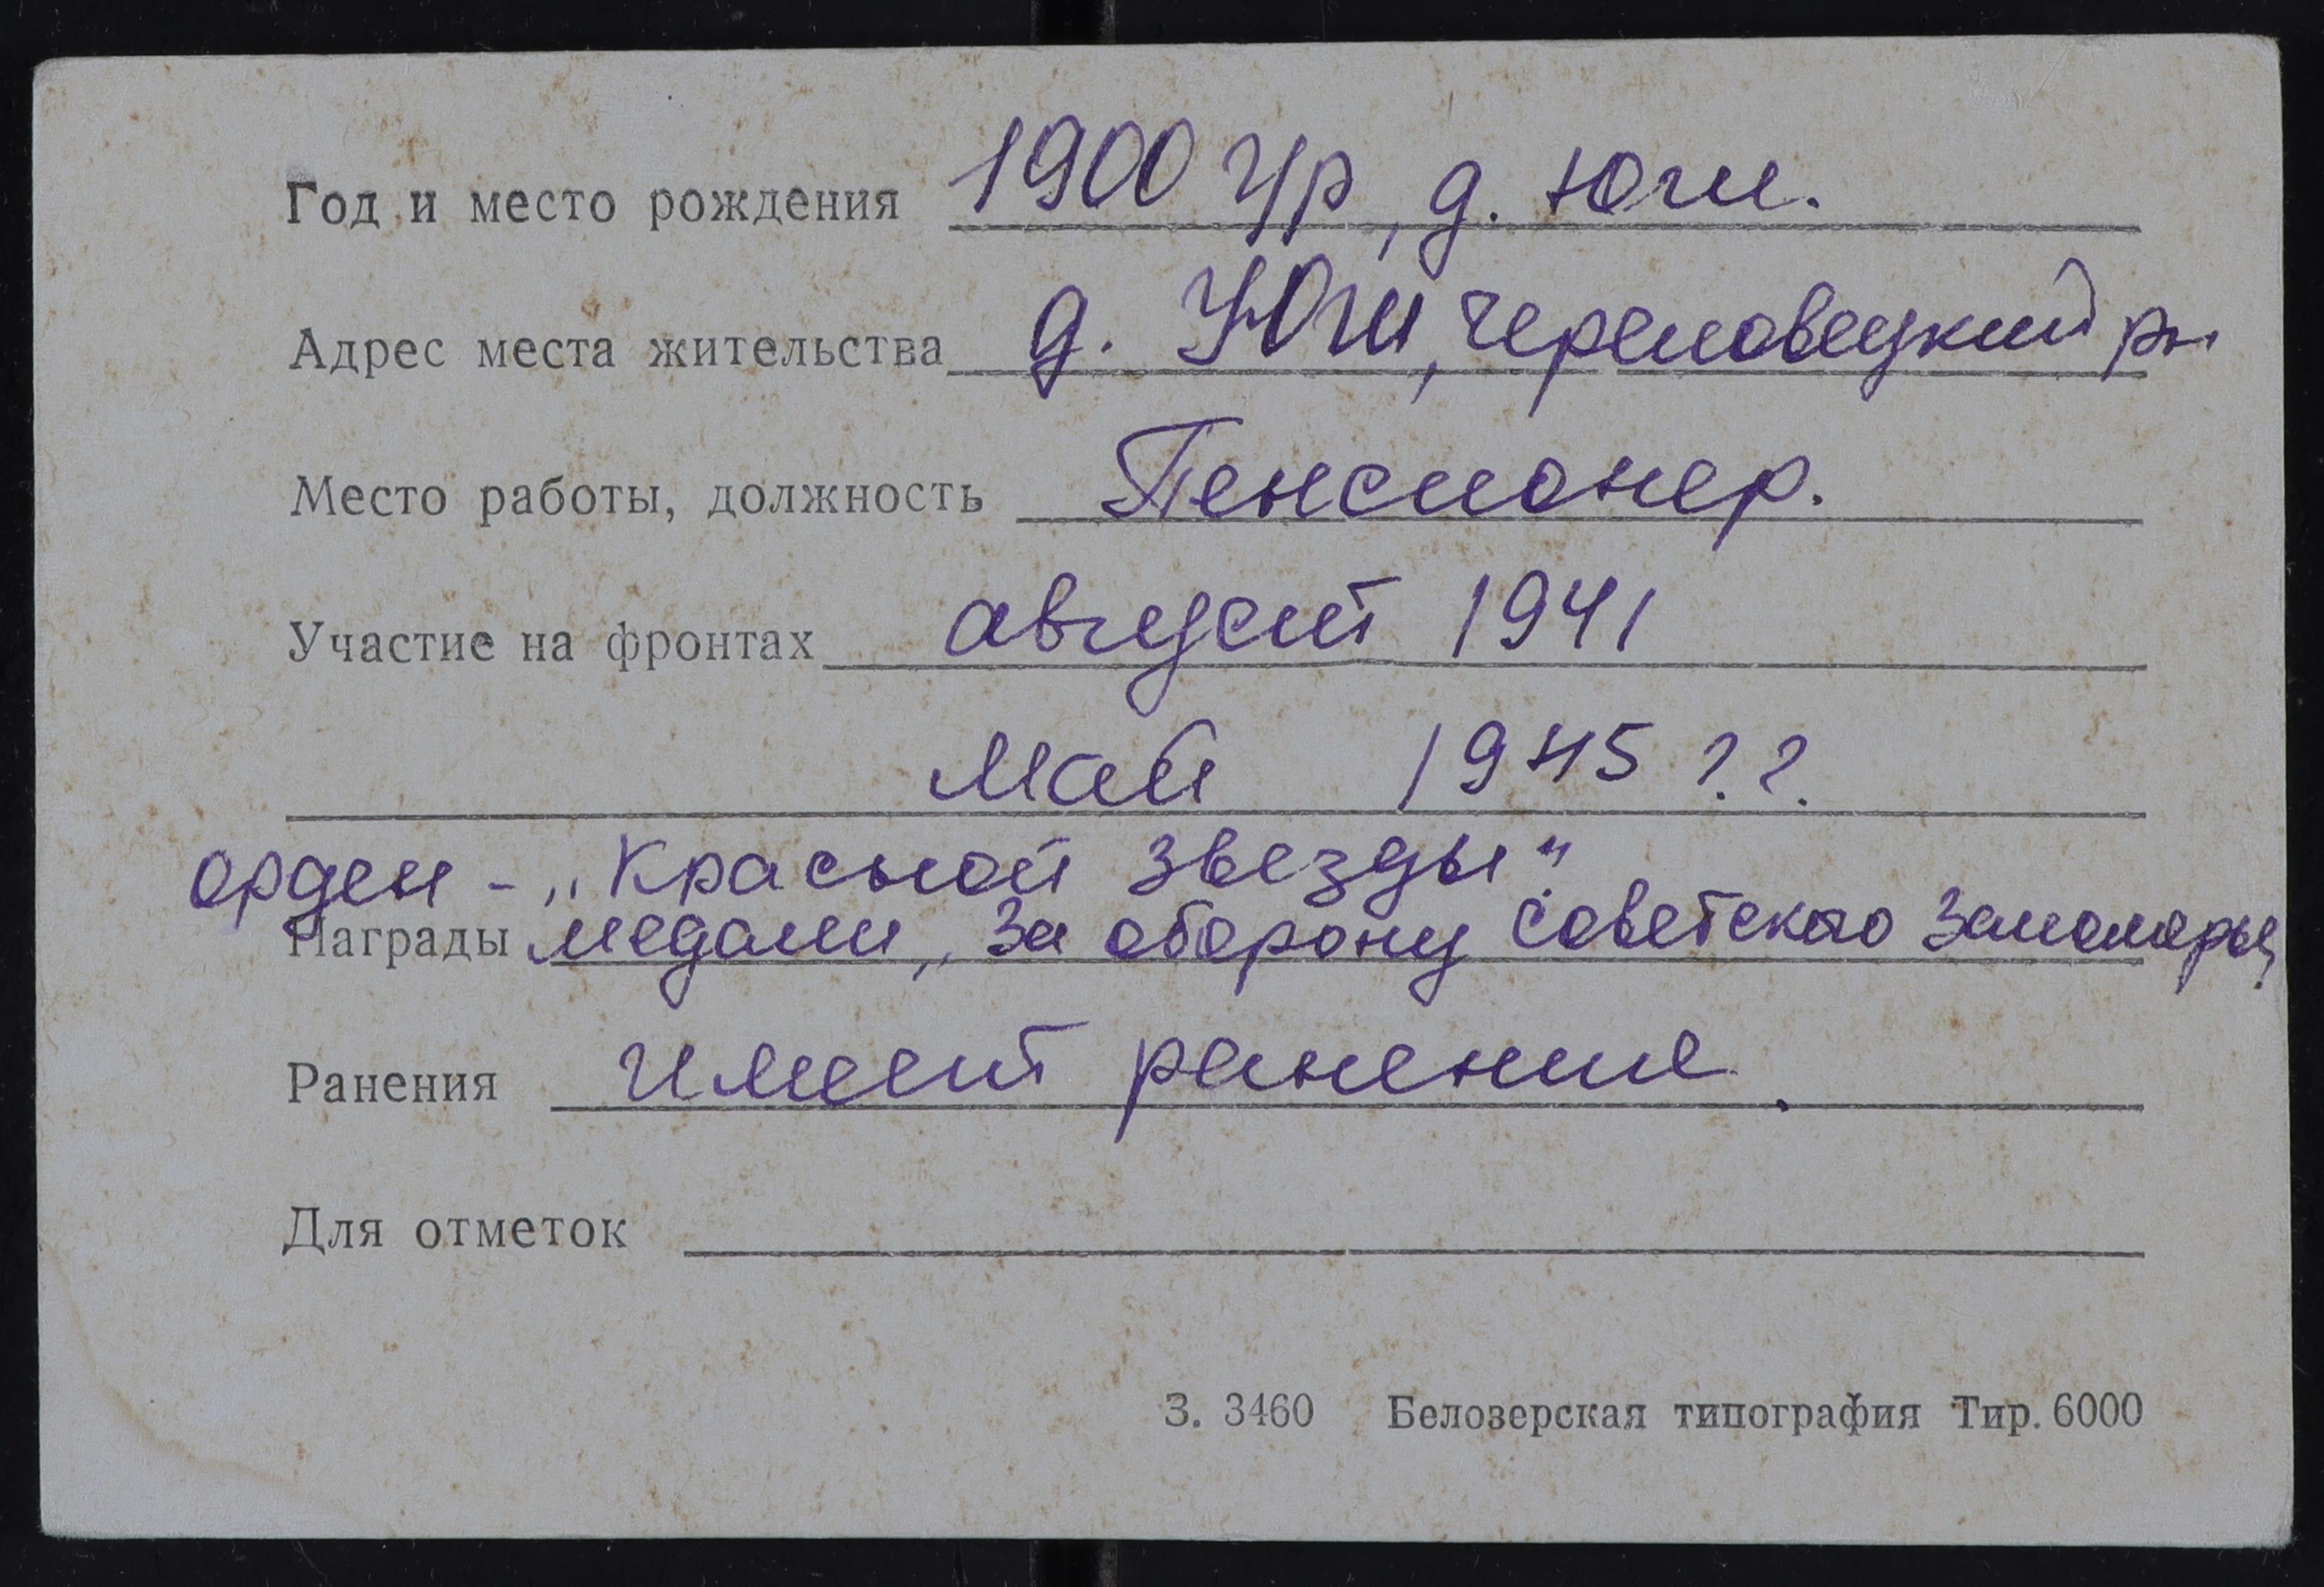 Год и место рождения 1900 г/р, д. Юги.
Адрес места жительства д. Юги, Череповецкий рн
Место работы, должность Пенсионер.
Участие на фронтах август 1941
май 1945 ??
орден - „Красной звезды"
Награды медали „За оборону Советского Заполярья
Ранения имеет ранение.
Для отметок
З. 3460 Белозерская типография Тир. 6000